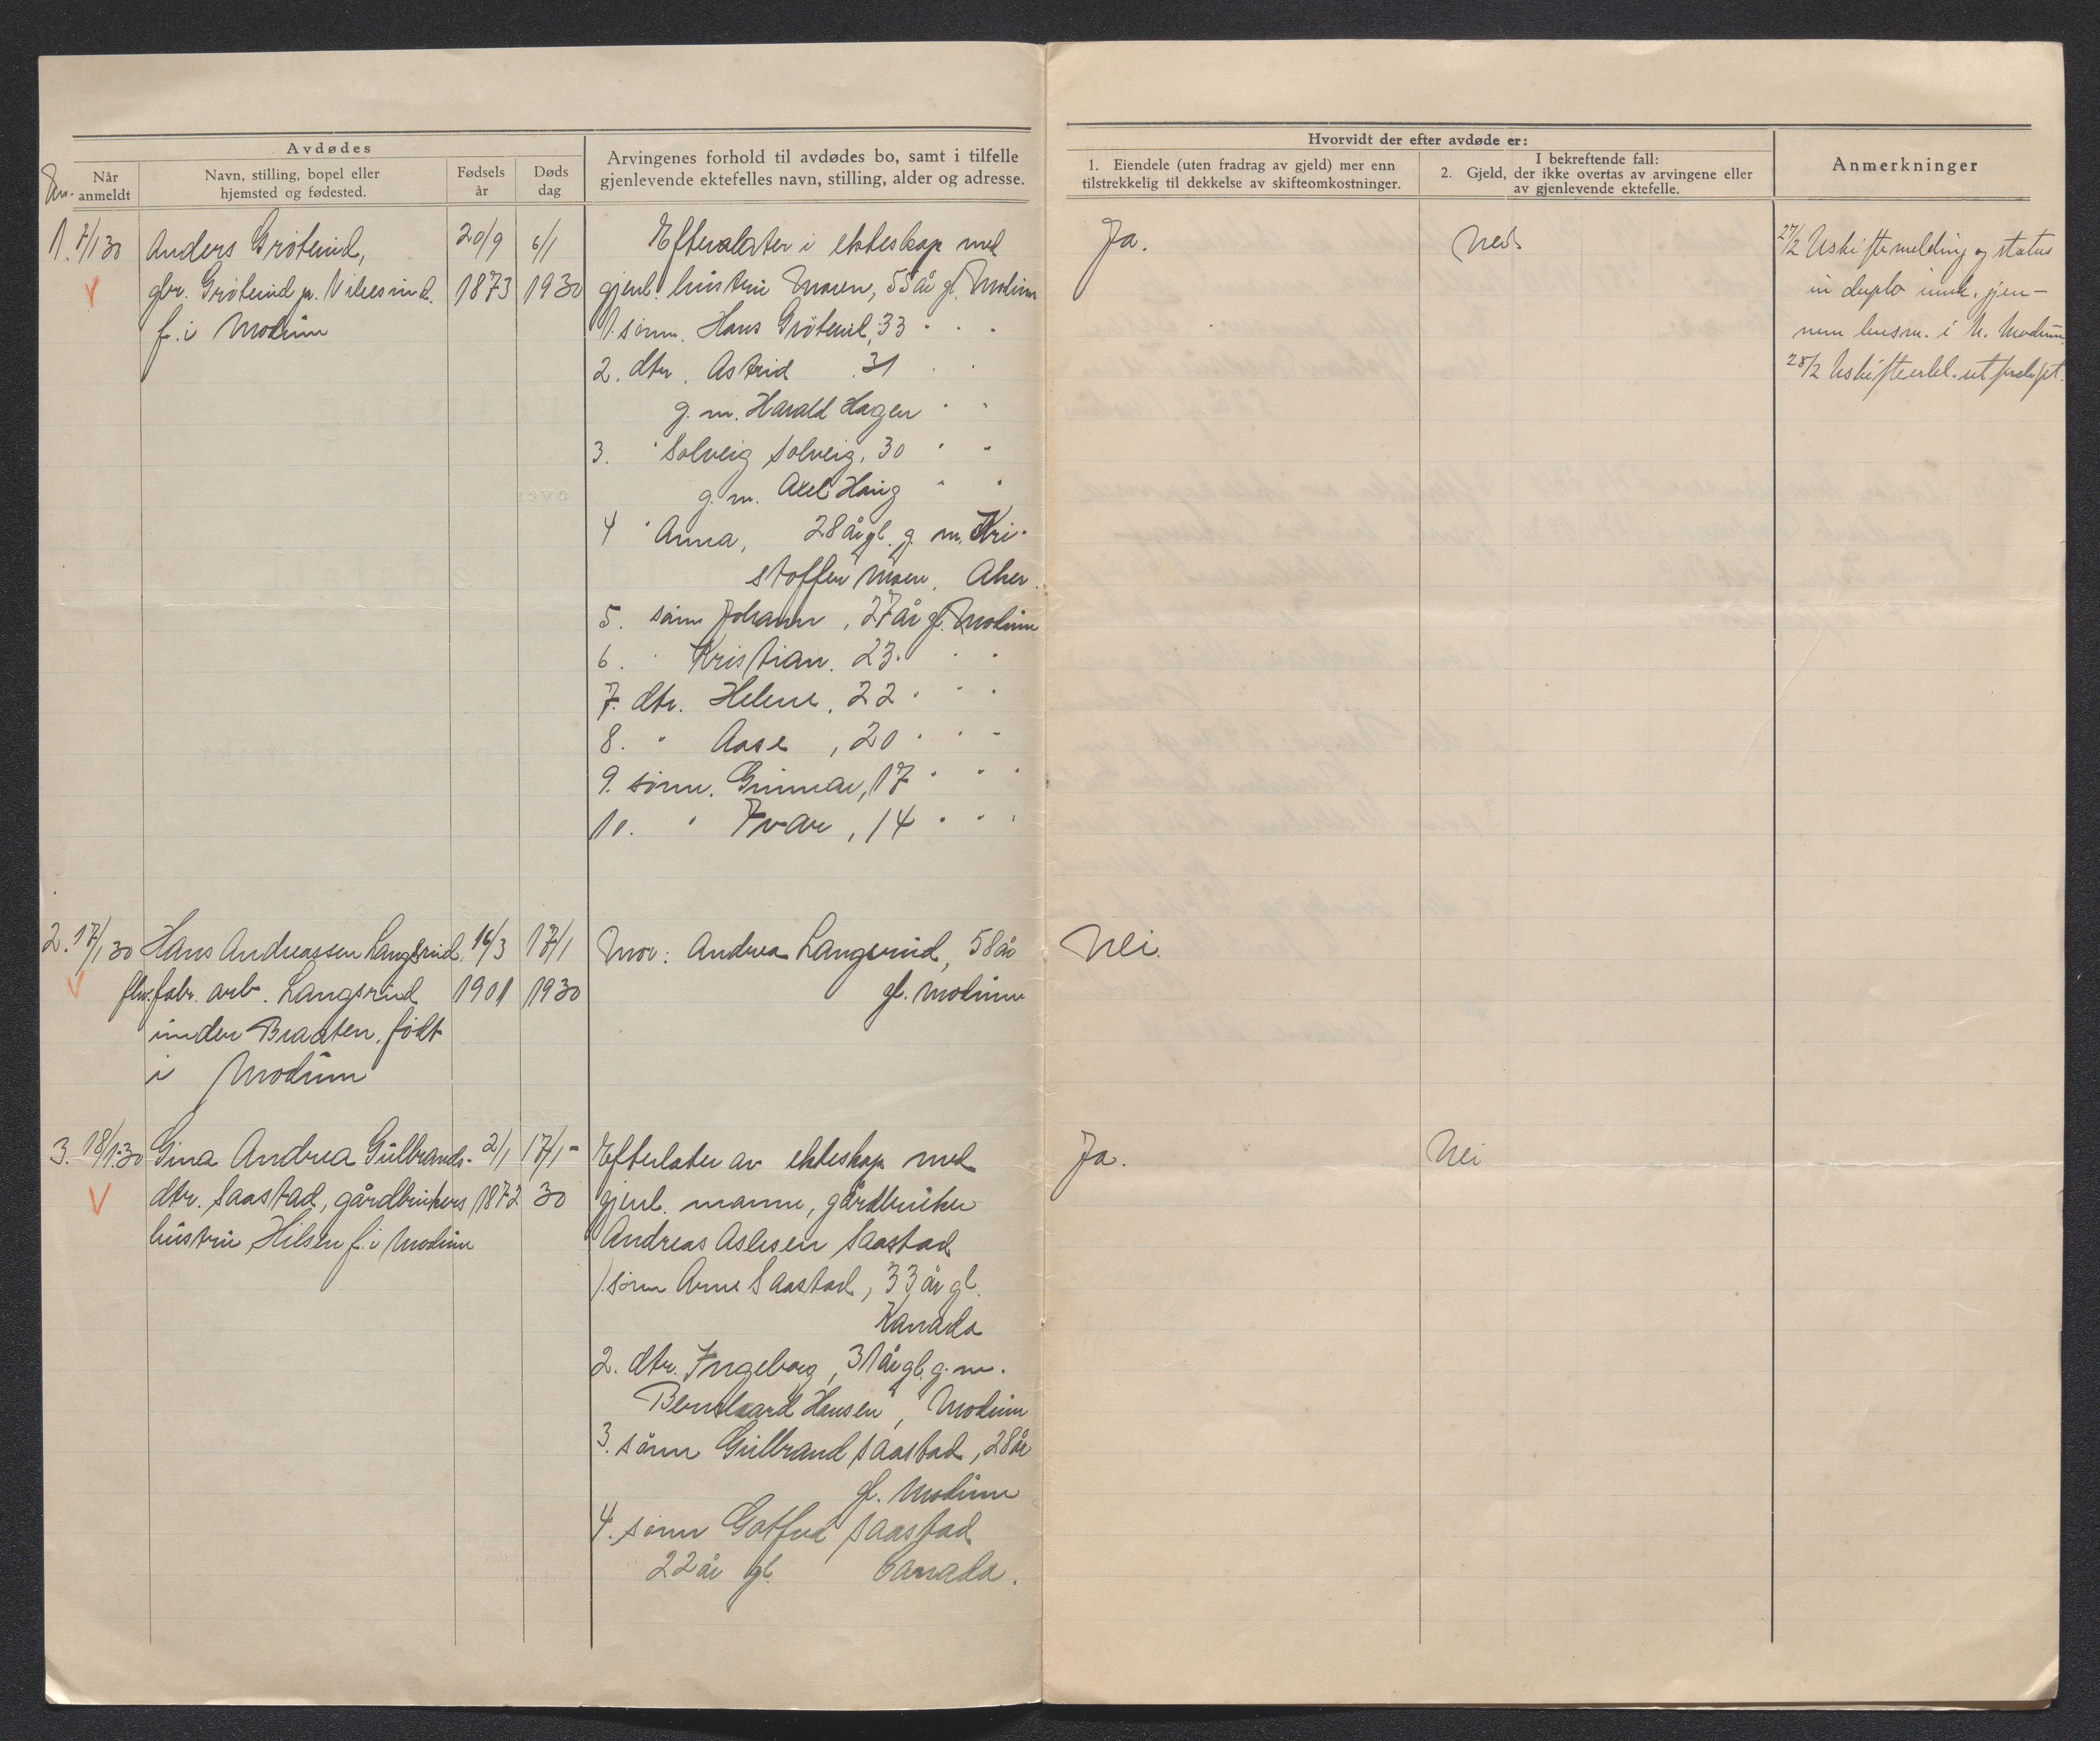 Avdødes
Når anmeldt
Navn, stilling, bopel eller hjemsted og fødested.
Fødsels år
Døds dag
Arvingenes forhold til avdødes bo, samt i tilfelle
gjenlevende ektefelles navn, stilling, alder og adresse.
Hvorvidt der efter avdøde er:
1. Eiendele (uten fradrag av gjeld) mer enn
tilstrekkelig til dekkelse av skifteomkostninger.
I bekreftende fall:
2. Gjeld, der ikke overtas av arvingene eller
av gjenlevende ektefelle.
Anmerkninger
1. 7/1 30 Anders Gröterud, 20/9 6/1
gbr. Gröterud pr. Vikesund. 1873 1930
f. i Modum
Efterlater i ekteskap med
gjenl. hustru Maren, 55 år gl. Modum
1. sönn. Hans Gröterud, 33 " " "
2. dtr. Astrid 31 " "
g. m. Harald Hagen " "
3. " Solveig Solveig, 30 " "
g. m. Axel Haug " "
4 " Anna, 28 år gl. g. m. Kri-
stoffer Moen, Aker.
5. sönn Johann, 27 år gl. Modum
6. " Kristian. 23 " " "
7. dtr. Helene, 22 " " "
8. " Aase, 20 " " "
9. sönn. Gunnar, 17 " " "
10. " Ivar, 14 " " "
Ja.
Nei.
27/2 Uskiftemelding og status
in duplo innk. gjen-
nem lensm. i N. Modum.
28/2 Uskifteerkl. utferdiget.
2. 17/1 30 Hans Andreassen Langsrud 16/3 17/1
fhv. fabr. arb. Langsrud 1901 1930
under Braaten, födt
i Modum
Mor: Andrea Langsrud, 58 år
gl. Modum
Nei.
3. 18/1 30 Gina Andrea Gulbrands- 2/1 17/1-
dtr. Saastad, gårdbrukers 1872 30
hustru, Hilsen f. i Modum
Efterlater av ekteskap med
gjenl. mann, gårdbruker
Andreas Aslesen Saastad
1. sönn Arne Saastad, 33 år gl.
Kanada
2. dtr. Ingeborg, 31 år gl. g. m.
Bernhard Hansen, Modum
3. sönn Gulbrand Saastad, 28 år
gl. Modum
4. sönn Gotfred Saastad
22 år gl. Canada.
Ja.
Nei